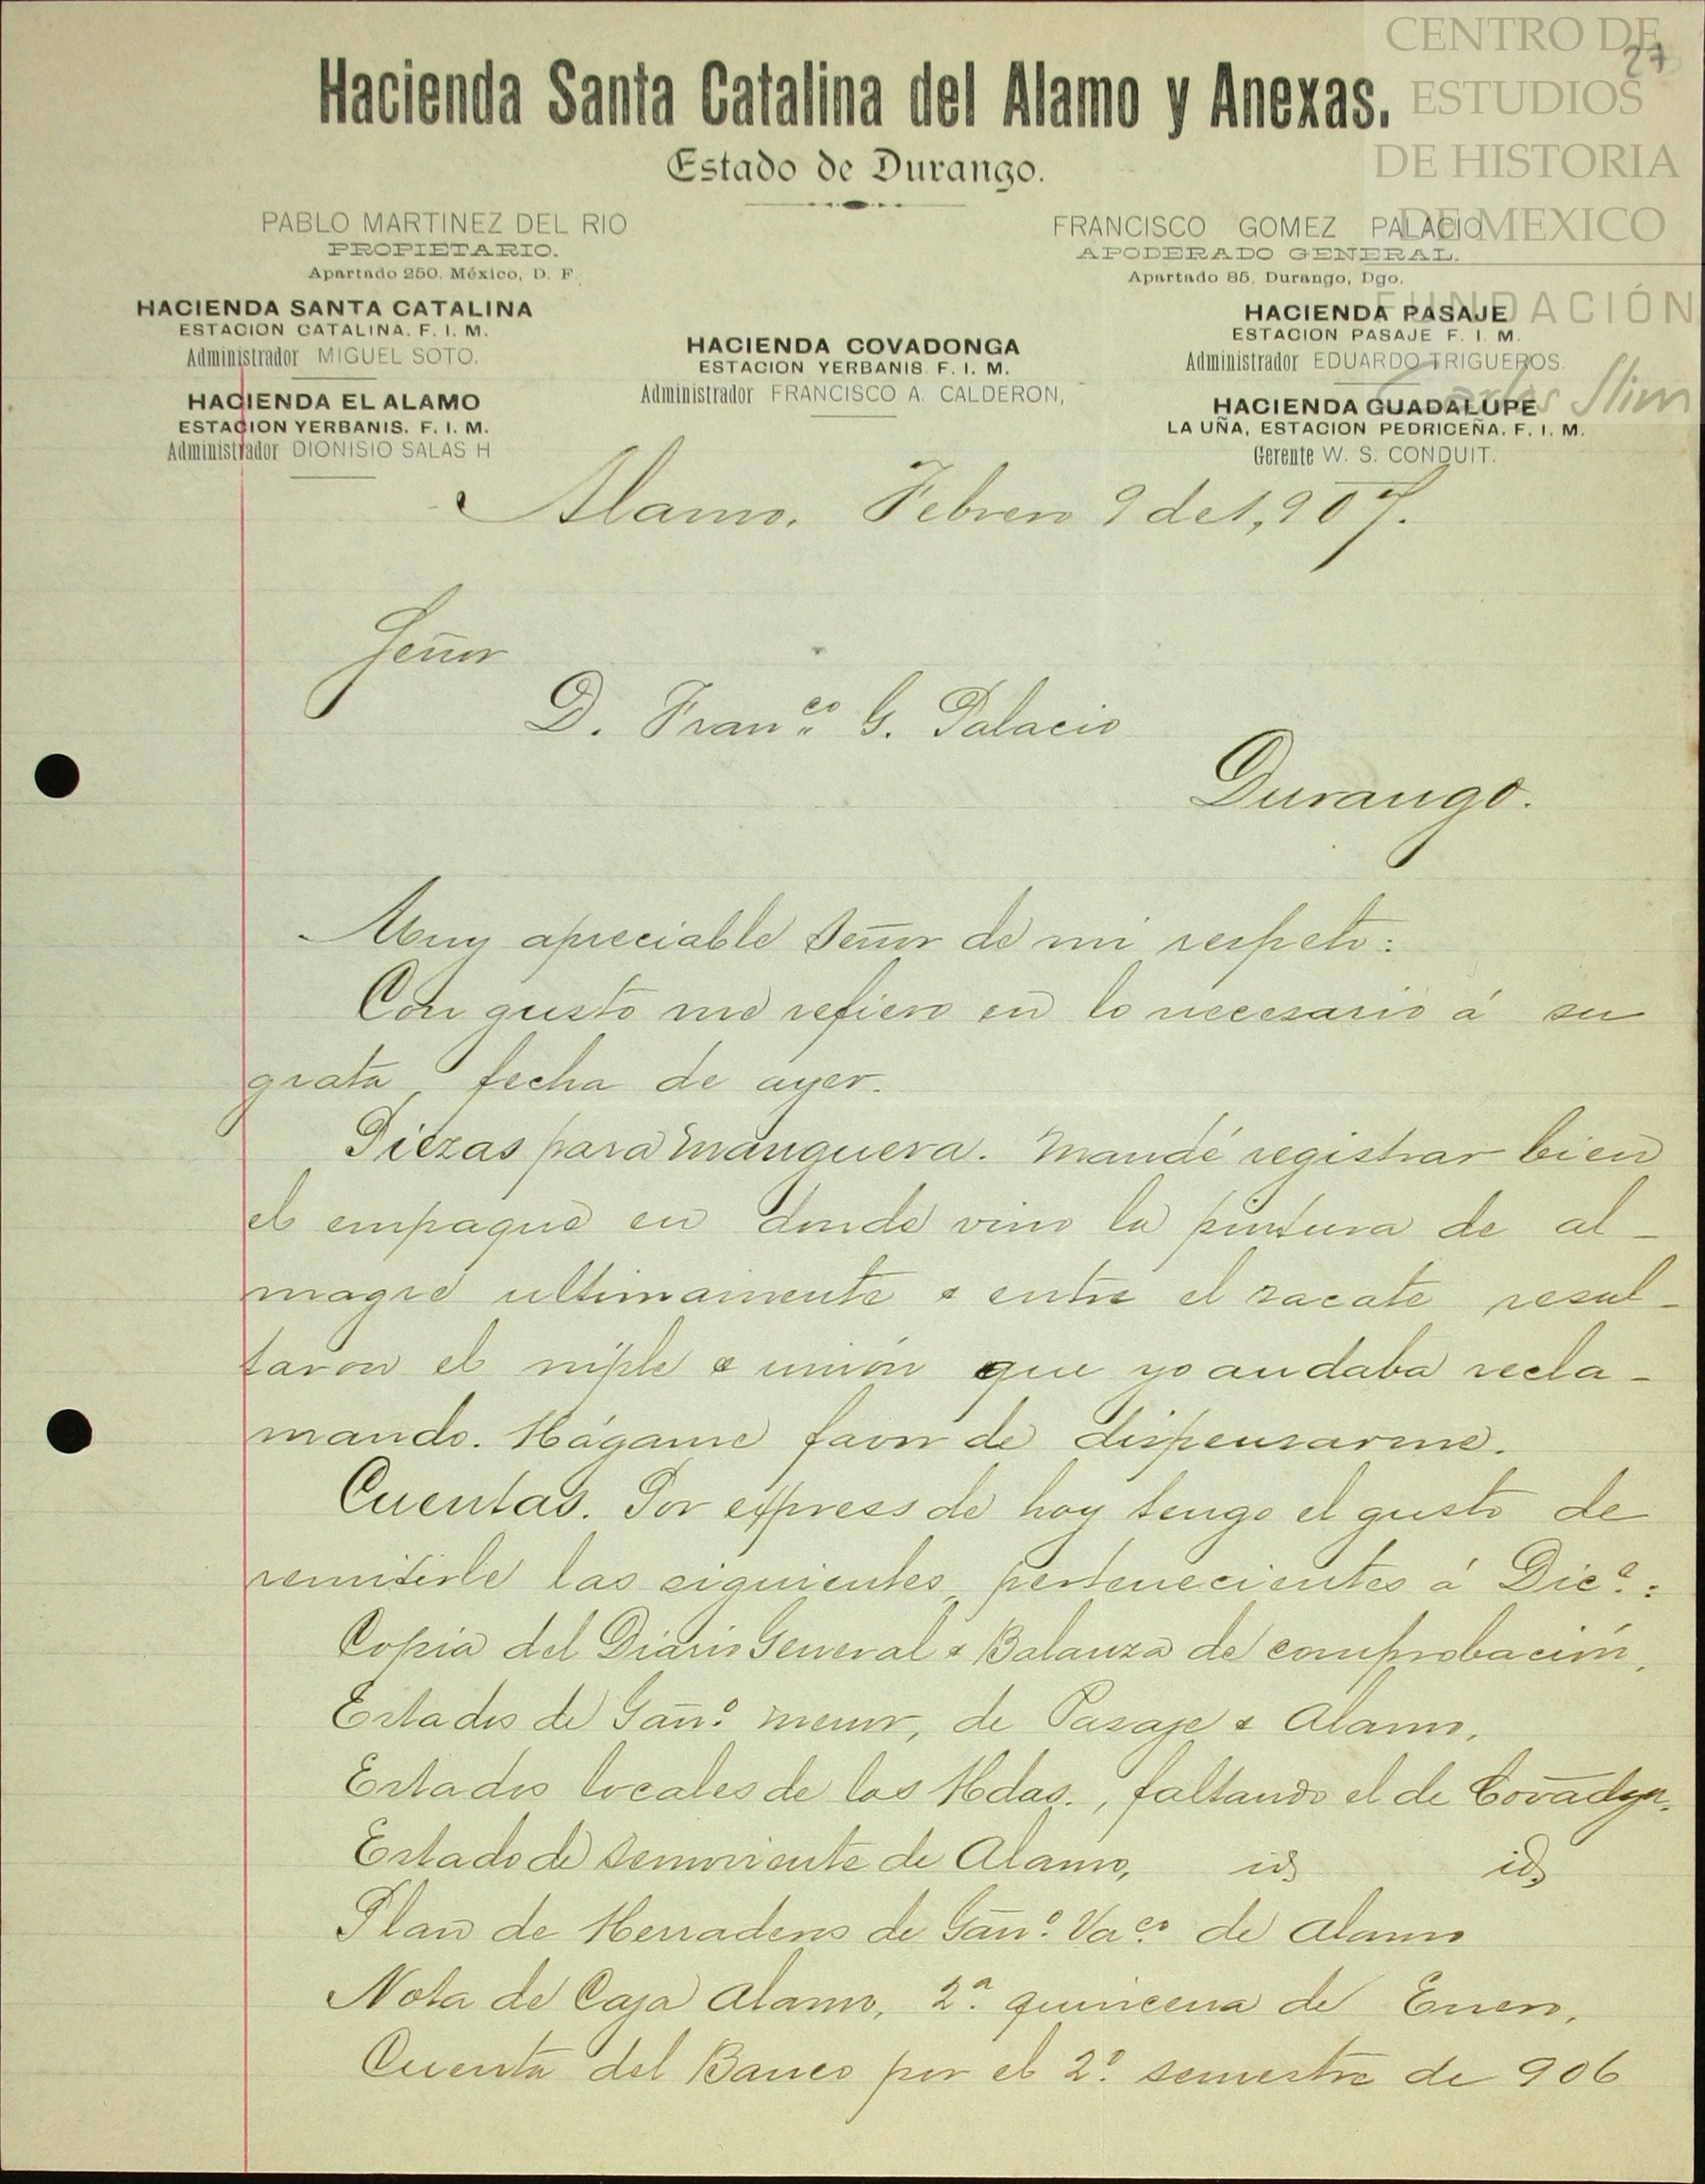 CENTRO DE
ESTUDIOS
DE HISTORIA
DE MEXICO
FUNDACIÓN
Carlos Slim
27
Hacienda Santa Catalina del Alamo y Anexas.
Estado de Durango.
PABLO MARTINEZ DEL RIO
PROPIETARIO.
Apartado 250. México, D. F.
FRANCISCO GOMEZ PALACIO
APODERADO GENERAL.
Apartado 85, Durango, Dgo.
HACIENDA SANTA CATALINA
ESTACION CATALINA. F. I. M.
Administrador MIGUEL SOTO.
HACIENDA EL ALAMO
ESTACION YERBANIS. F. I. M.
Administrador DIONISIO SALAS H
HACIENDA COVADONGA
ESTACION YERBANIS F. I. M.
Administrador FRANCISCO A. CALDERON,
HACIENDA PASAJE
ESTACION PASAJE F. I. M.
Administrador EDUARDO TRIGUEROS.
HACIENDA GUADALUPE
LA UÑA, ESTACION PEDRICEÑA. F. I. M.
Gerente W. S. CONDUIT.
Alamo. Febrero 9 de 1,907.
Señor
D. Franco. G. Palacio
Durango.
Muy apreciable Señor de mi respeto:
Con gusto me refiero en lo necesario á su
grata, fecha de ayer.
Piezas para manguera. Mandé registrar bien
el empaque en donde vino la pintura de al-
magre ultimamente & entre el zacate resul-
taron el niple & unión que yo andaba recla-
mando. Hágame favor de dispensarme.
Cuentas. Por express de hoy tengo el gusto de
remitirle las siguientes, pertenecientes á Dice.:
Copia del Diario General & Balanza de comprobación,
Estados de Gano. menor, de Pasaje & Alamo,
Estados locales de las Hdas., faltando el de Covadga.
Estado de semoviente de Alamo, id, id,
Plan de Herraderos de Gano. Vaco. de Alamo
Nota de Caja Alamo, 2a. quincena de Enero,
Cuenta del Banco por el 2o. semestre de 906